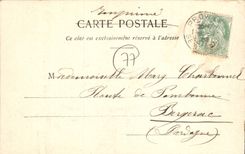 Imprimé
CARTE POSTALE
Ce côté est exclusivement réservé à l'adresse
77
Mademoiselle Mary Charbonnel
Route de Pombonne
Bergerac
(Dordogne)